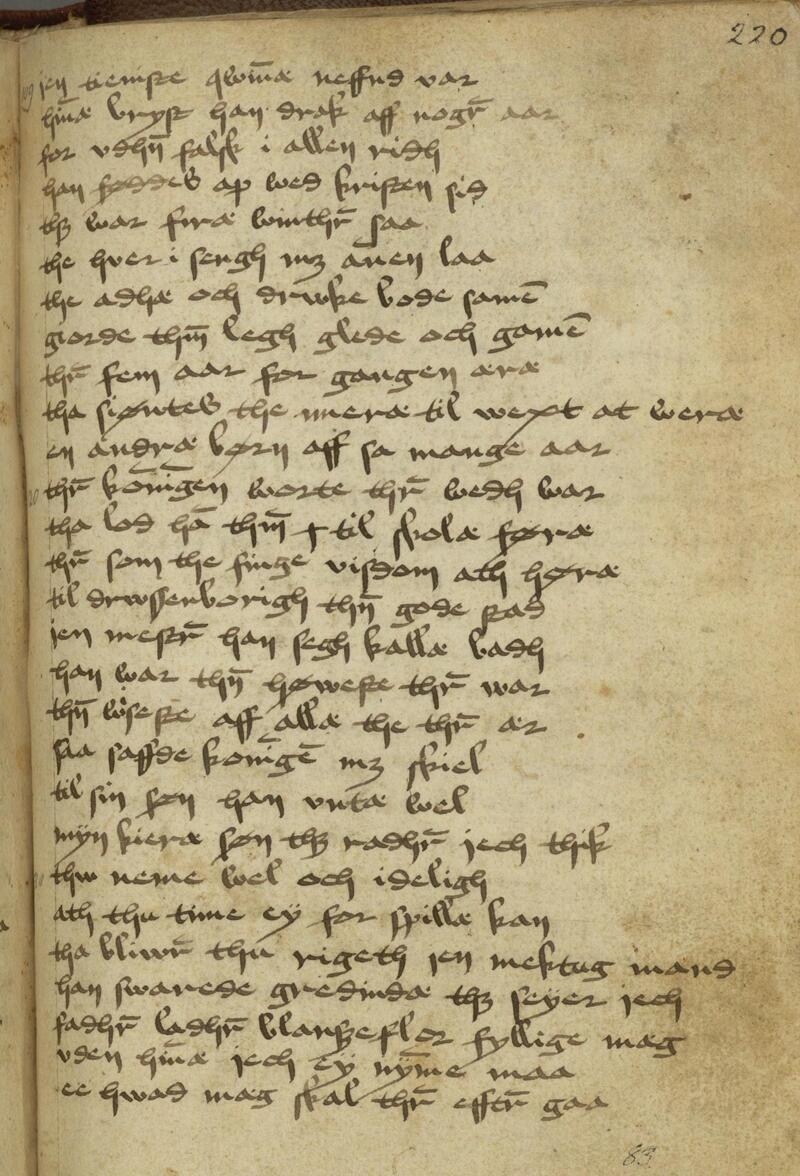 220
jen tieniste qwīnæ neffnd var
hīnæ bryst han drak aff nogr̄ aar
for vdhn̄ falsk i allen ridh
han føddes ap wed kristen sid
thꝫ war firæ winthr̄ saa
the hver i sengh mꝫ anen laa
the adhæ och drwke bode samē
giorde thm̄ legh glede och gamē
thr̄ fem aar for gangen æræ
tha siøntes the meræ til wext at weræ
en andræ børn aff sa mange aar
thr̄ konīgen worte thr̄ wedh war
tha lod hā thm̄ til skolæ føræ
thr̄ som the finge visdom ath høræ
til drwssenborigh thn̄ gode stad
jen mestr̄ han segh kallæ badh
han war thn̄ høweste thr̄ war
thn̄ wiseste aff allæ the thr̄ ær
saa saffde konīgē mꝫ skiel
til sin søn han vntæ wel
myn kieræ søn thꝫ radhr̄ jech thik
thw neme wel och ideligh
ath thu time ey for spillæ kan
tha bliwr̄ thu rigeth jen mektug mand
han swarede gredindæ thꝫ seyer jech
fadhr̄ ladhr̄ blanszeflor fyllige mæg
vden hīnæ jech ey nȳme maa
ee hwad mæg skal thr̄ efftr̄ gaa
83